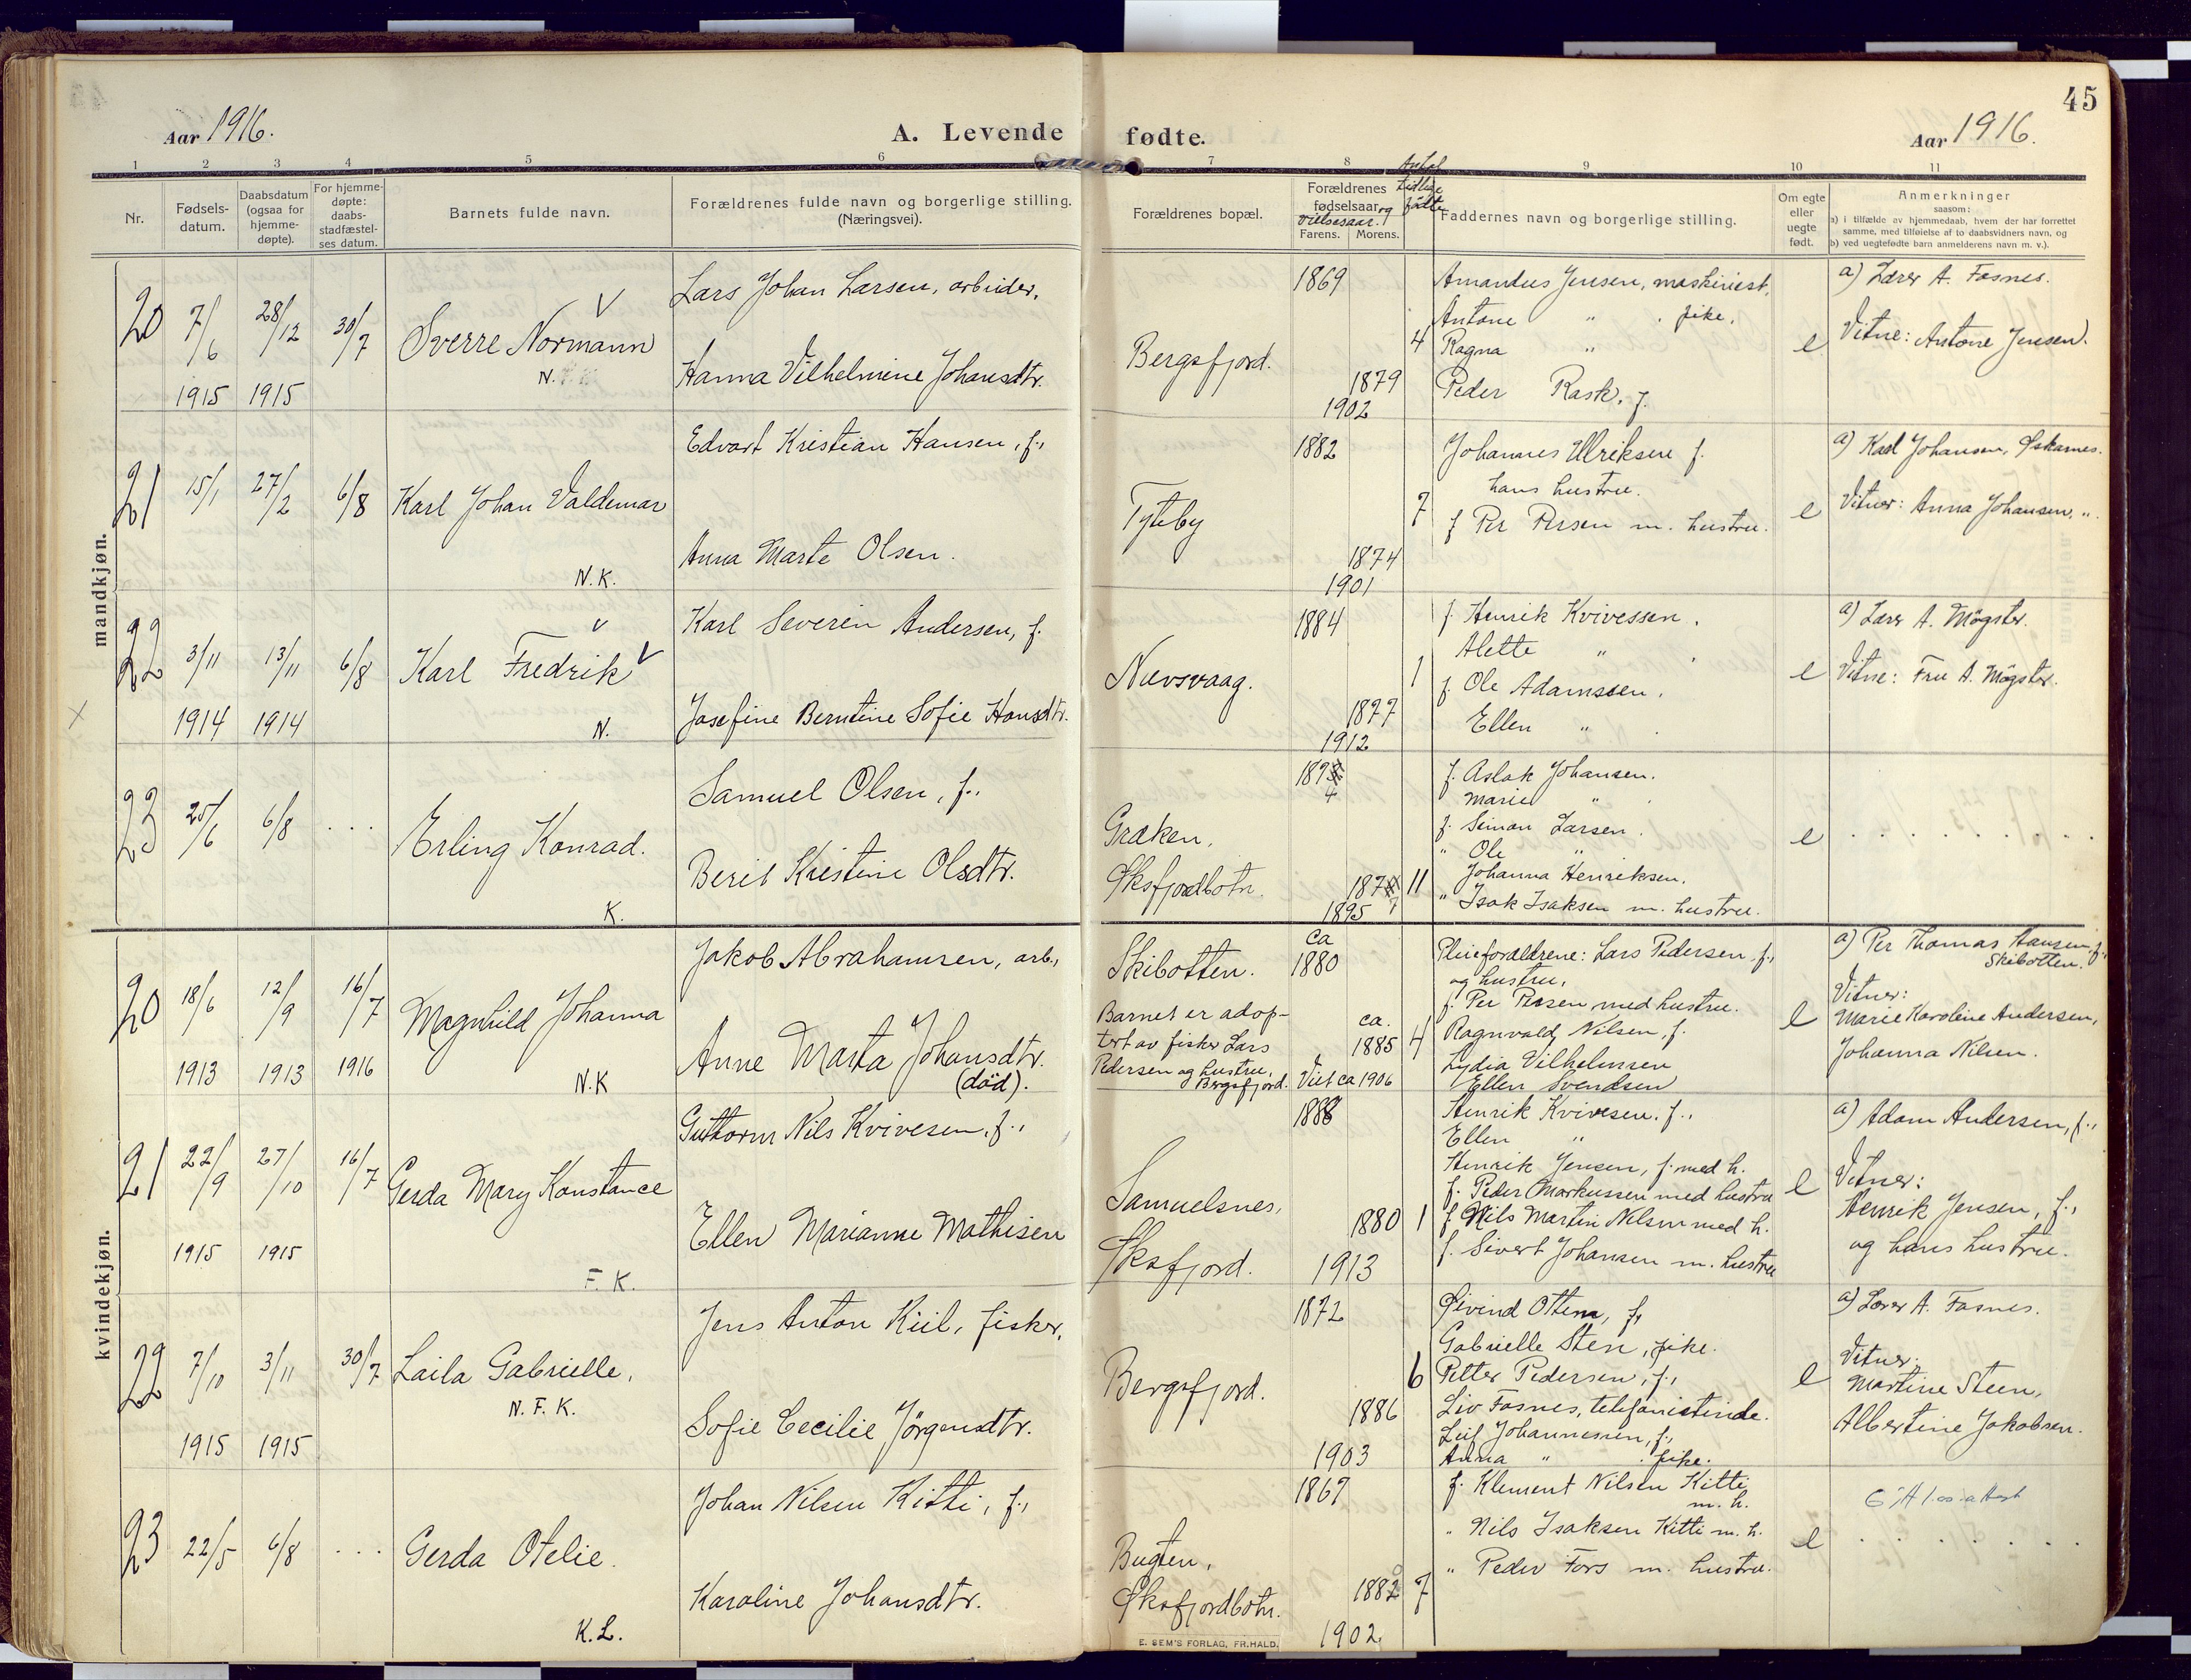 45
Aar 1916.
A. Levende fødte.
Aar 1916.
1 2 3 4 5 6 7 8 9 10 11
Nr.
Fødsels-
datum.
Daabsdatum
(ogsaa for
hjemme-
døpte).
For hjemme-
døpte:
daabs-
stadfæstel-
ses datum.
Barnets fulde navn.
Forældrenes fulde navn og borgerlige stilling.
(Næringsvei).
Forældrenes bopæl.
Forældrenes
fødselsaar og
vielsesaar.
Farens. Morens.
Antal
tidlige
fødte
Faddernes navn og borgerlige stilling.
Om egte
eller
uegte
født.
Anmerkninger
saasom:
a) i tilfælde av hjemmedaab, hvem der har forrettet
samme, med tilføielse af to daabsvidners navn, og
b) ved uegtefødte barn anmelderens navn m. v.).
mandkjøn.
20
7/6
1915
28/12
1915
30/7
Sverre Normann
N.
Lars Johan Larsen, arbeider,
Hanna Vilhelmine Johansdtr.
Bergsfjord.
1869
1879
1902
4
Amandus Jensen, maskinist,
Antone " . pike.
Ragna "
Peder Rask, f.
e
a) Lærer A. Fosnes.
Vitne: Antone Jensen.
21
15/1
27/2
6/8
Karl Johan Valdemar
N. K.
Edvart Kristian Hansen, f.,
Anna Marte Olsen.
Tyteby
1882
1874
1901
7
Johannes Ulriksen f.
hans hustru.
f Per Persen m. hustru.
e
a) Karl Johansen, Øskarnes.
Vitner: Anna Johansen, ".
22
3/11
1914
13/11
1914
6/8
Karl Fredrik
N.
Karl Severin Andersen, f.
Josefine Berntine Sofie Hansdtr.
Nuvsvaag.
1884
1877
1912
1
f. Henrik Kvivessen.
Alette "
f. Ole Adamssen.
Ellen "
e
a) Lærer A. Møgster.
Vitne: Fru A. Møgster.
23
25/6
6/8
. . .
Erling Konrad.
K.
Samuel Olsen, f.,
Berit Kristine Olsdtr.
Graken,
Øksfjordbotn.
1895
11
f. Aslak Johansen.
Marie "
f. Simon Larsen.
" Ole "
Johanna Henriksen.
" Isak Isaksen m. hustru.
e
kvindekjøn.
20
18/6
1913
12/9
1913
16/7
1916
Magnhild Johanna
N.K
Jakob Abrahamsen, arb.,
Anne Marta Johansdtr.
(død).
Skibotten.
Barnet er adop-
tert av fisker Lars
Pedersen og hustru,
Bergsfjord.
ca
1880
ca.
1885
Viet ca 1906
4
Pleieforældrene: Lars Pedersen, f.,
og hustru,
f. Per Persen med hustru.
Ragnvald Nilsen, f.
Lydia Vilhelmsen
Ellen Svendsen
e
a) Per Thomas Hansen, f.,
Skibotten.
Vitner:
Marie Karoline Andersen,
Johanna Nilsen.
21
22/9
1915
27/10
1915
16/7
Gerda Mary Konstance
F. K.
Guttorm Nils Kvivesen, f.,
Ellen Marianne Mathisen
Samuelsnes,
Øksfjord.
1888
1880
1913
1
Henrik Kvivesen, f.,
Ellen "
Henrik Jensen, f. med h.
f. Peder Markussen med hustru
f. Nils Martin Nilsen med h.
f. Sivert Johansen m. hustru
e
a) Adam Andersen, f.,
Vitner:
Henrik Jensen, f.,
og hans hustru.
22
7/10
1915
3/11
1915
30/7
Laila Gabrielle,
N. F. K.
Jens Anton Kiil, fisker,
Sofie Cecilie Jørgensdtr.
Bergsfjord.
1872
1886
1903
6
Øivind Ottem, f.
Gabrielle Sten, pike.
Petter Pedersen, f.,
Liv Fosnes, telefonistinde.
Leif Johannesen, f.,
Anna " . pike.
e
a) Lærer A. Fosnes.
Vitner:
Martine Steen,
Albertine Jakobsen.
23
22/5
6/8
. . .
Gerda Otelie.
K. L.
Johan Nilsen Kitti, f.,
Karoline Johansdtr.
Bugten,
Øksfjordbotn.
1867
1882
1902
7
f. Klement Nilsen Kitti
m. h.
" Nils Isaksen Kitti m. h.
" Peder Fors m. hustru.
e
E. SEM'S FORLAG, FR.HALD.